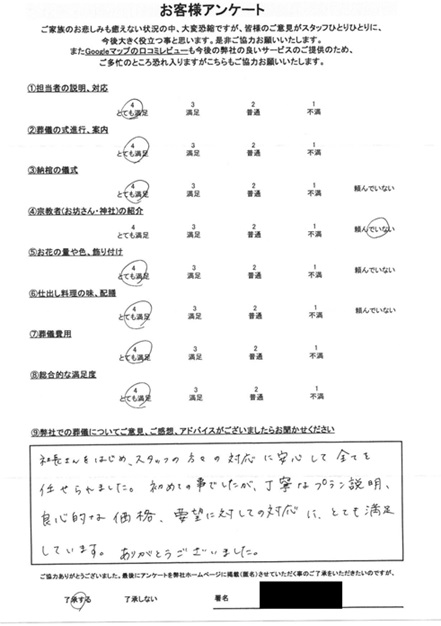 お客様アンケート
ご家族のお悲しみも癒えない状況の中、大変恐縮ですが、皆様のご意見がスタッフひとりひとりに、
今後大きく役立つ事と思います。是非ご協力お願いいたします。
またGoogleマップの口コミレビューも今後の弊社の良いサービスのご提供のため、
ご多忙のところ恐れ入りますがこちらもご協力お願いいたします。
①担当者の説明、対応
4 3 2 1
とても満足 満足 普通 不満
②葬儀の式進行、案内
4 3 2 1
とても満足 満足 普通 不満
③納棺の儀式
4 3 2 1
とても満足 満足 普通 不満 頼んでいない
④宗教者(お坊さん・神社)の紹介
4 3 2 1
とても満足 満足 普通 不満 頼んでいない
⑤お花の量や色、飾り付け
4 3 2 1
とても満足 満足 普通 不満 頼んでいない
⑥仕出し料理の味、配膳
4 3 2 1
とても満足 満足 普通 不満 頼んでいない
⑦葬儀費用
4 3 2 1
とても満足 満足 普通 不満
⑧総合的な満足度
4 3 2 1
とても満足 満足 普通 不満
⑨弊社での葬儀についてご意見、ご感想、アドバイスがございましたらお聞かせください
社長さんをはじめ、スタッフの方々の対応に安心して全てを
任せられました。初めての事でしたが、丁寧なプラン説明、
良心的な価格、要望に対しての対応に、とても満足
しています。ありがとうございました。
ご協力ありがとうございました。最後にアンケートを弊社ホームページに掲載(匿名)させていただく事のご了承をいただきたいのですが、
了承する 了承しない 署名